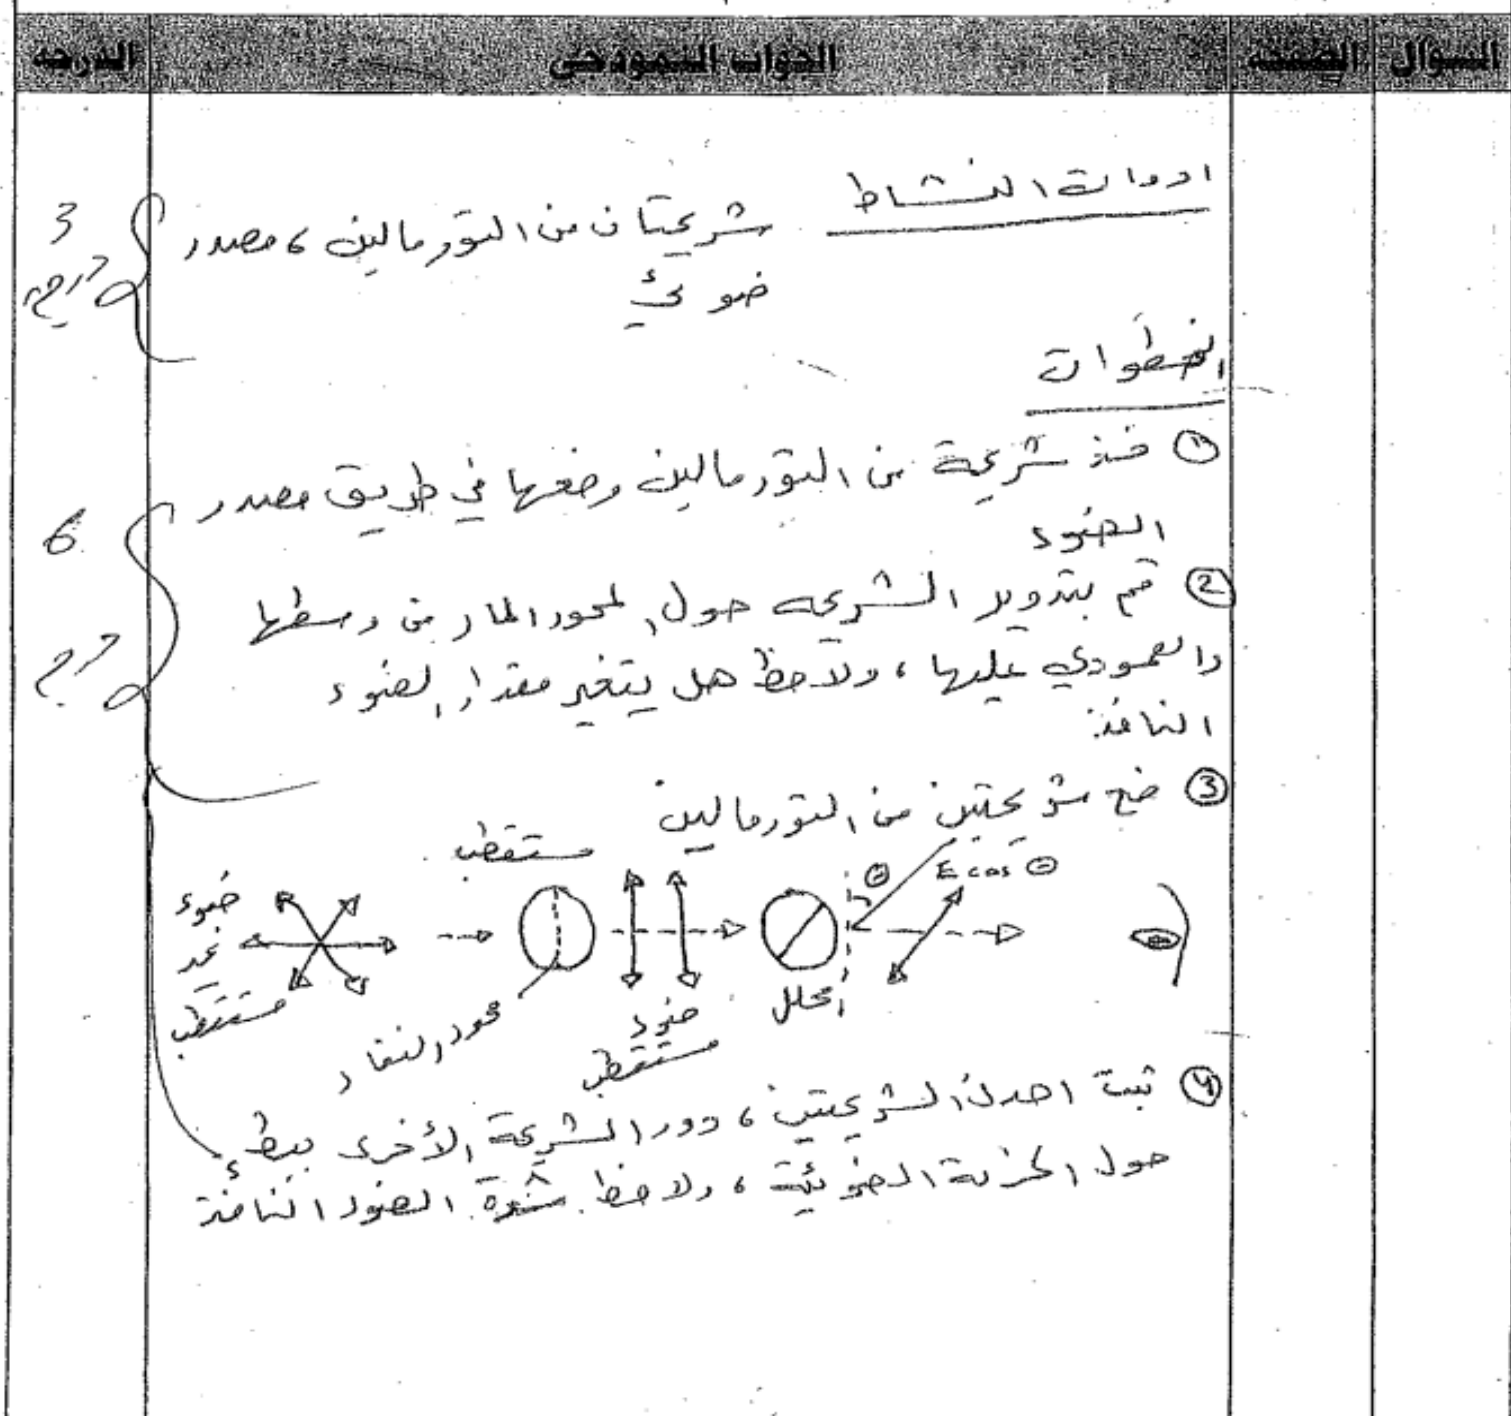 السؤال الصفحة الجواب النموذجي الدرجه
ادوات النشاط شريحتان من التورمالين ، مصدر
ضوئي
3
درجه
الخطوات
① خذ شريحة من التورمالين وضعها في طريق مصدر
الضوء
② قم بتدوير الشريحه حول المحور المار من وسطها
والعمودي عليها ، ولاحظ هل يتغير مقدار الضوء
النافذ.
6
درجه
③ ضع شريحتين من التورمالين
مستقطب
ضوء
غير
مستقطب
محور النفاذ
ضوء
مستقطب
المحلل
θ
E cos θ
④ ثبت احدى الشريحتين ، ودور الشريحة الأخرى ببطئ
حول الحزمة الضوئية ، ولاحظ شدة الضوء النافذ